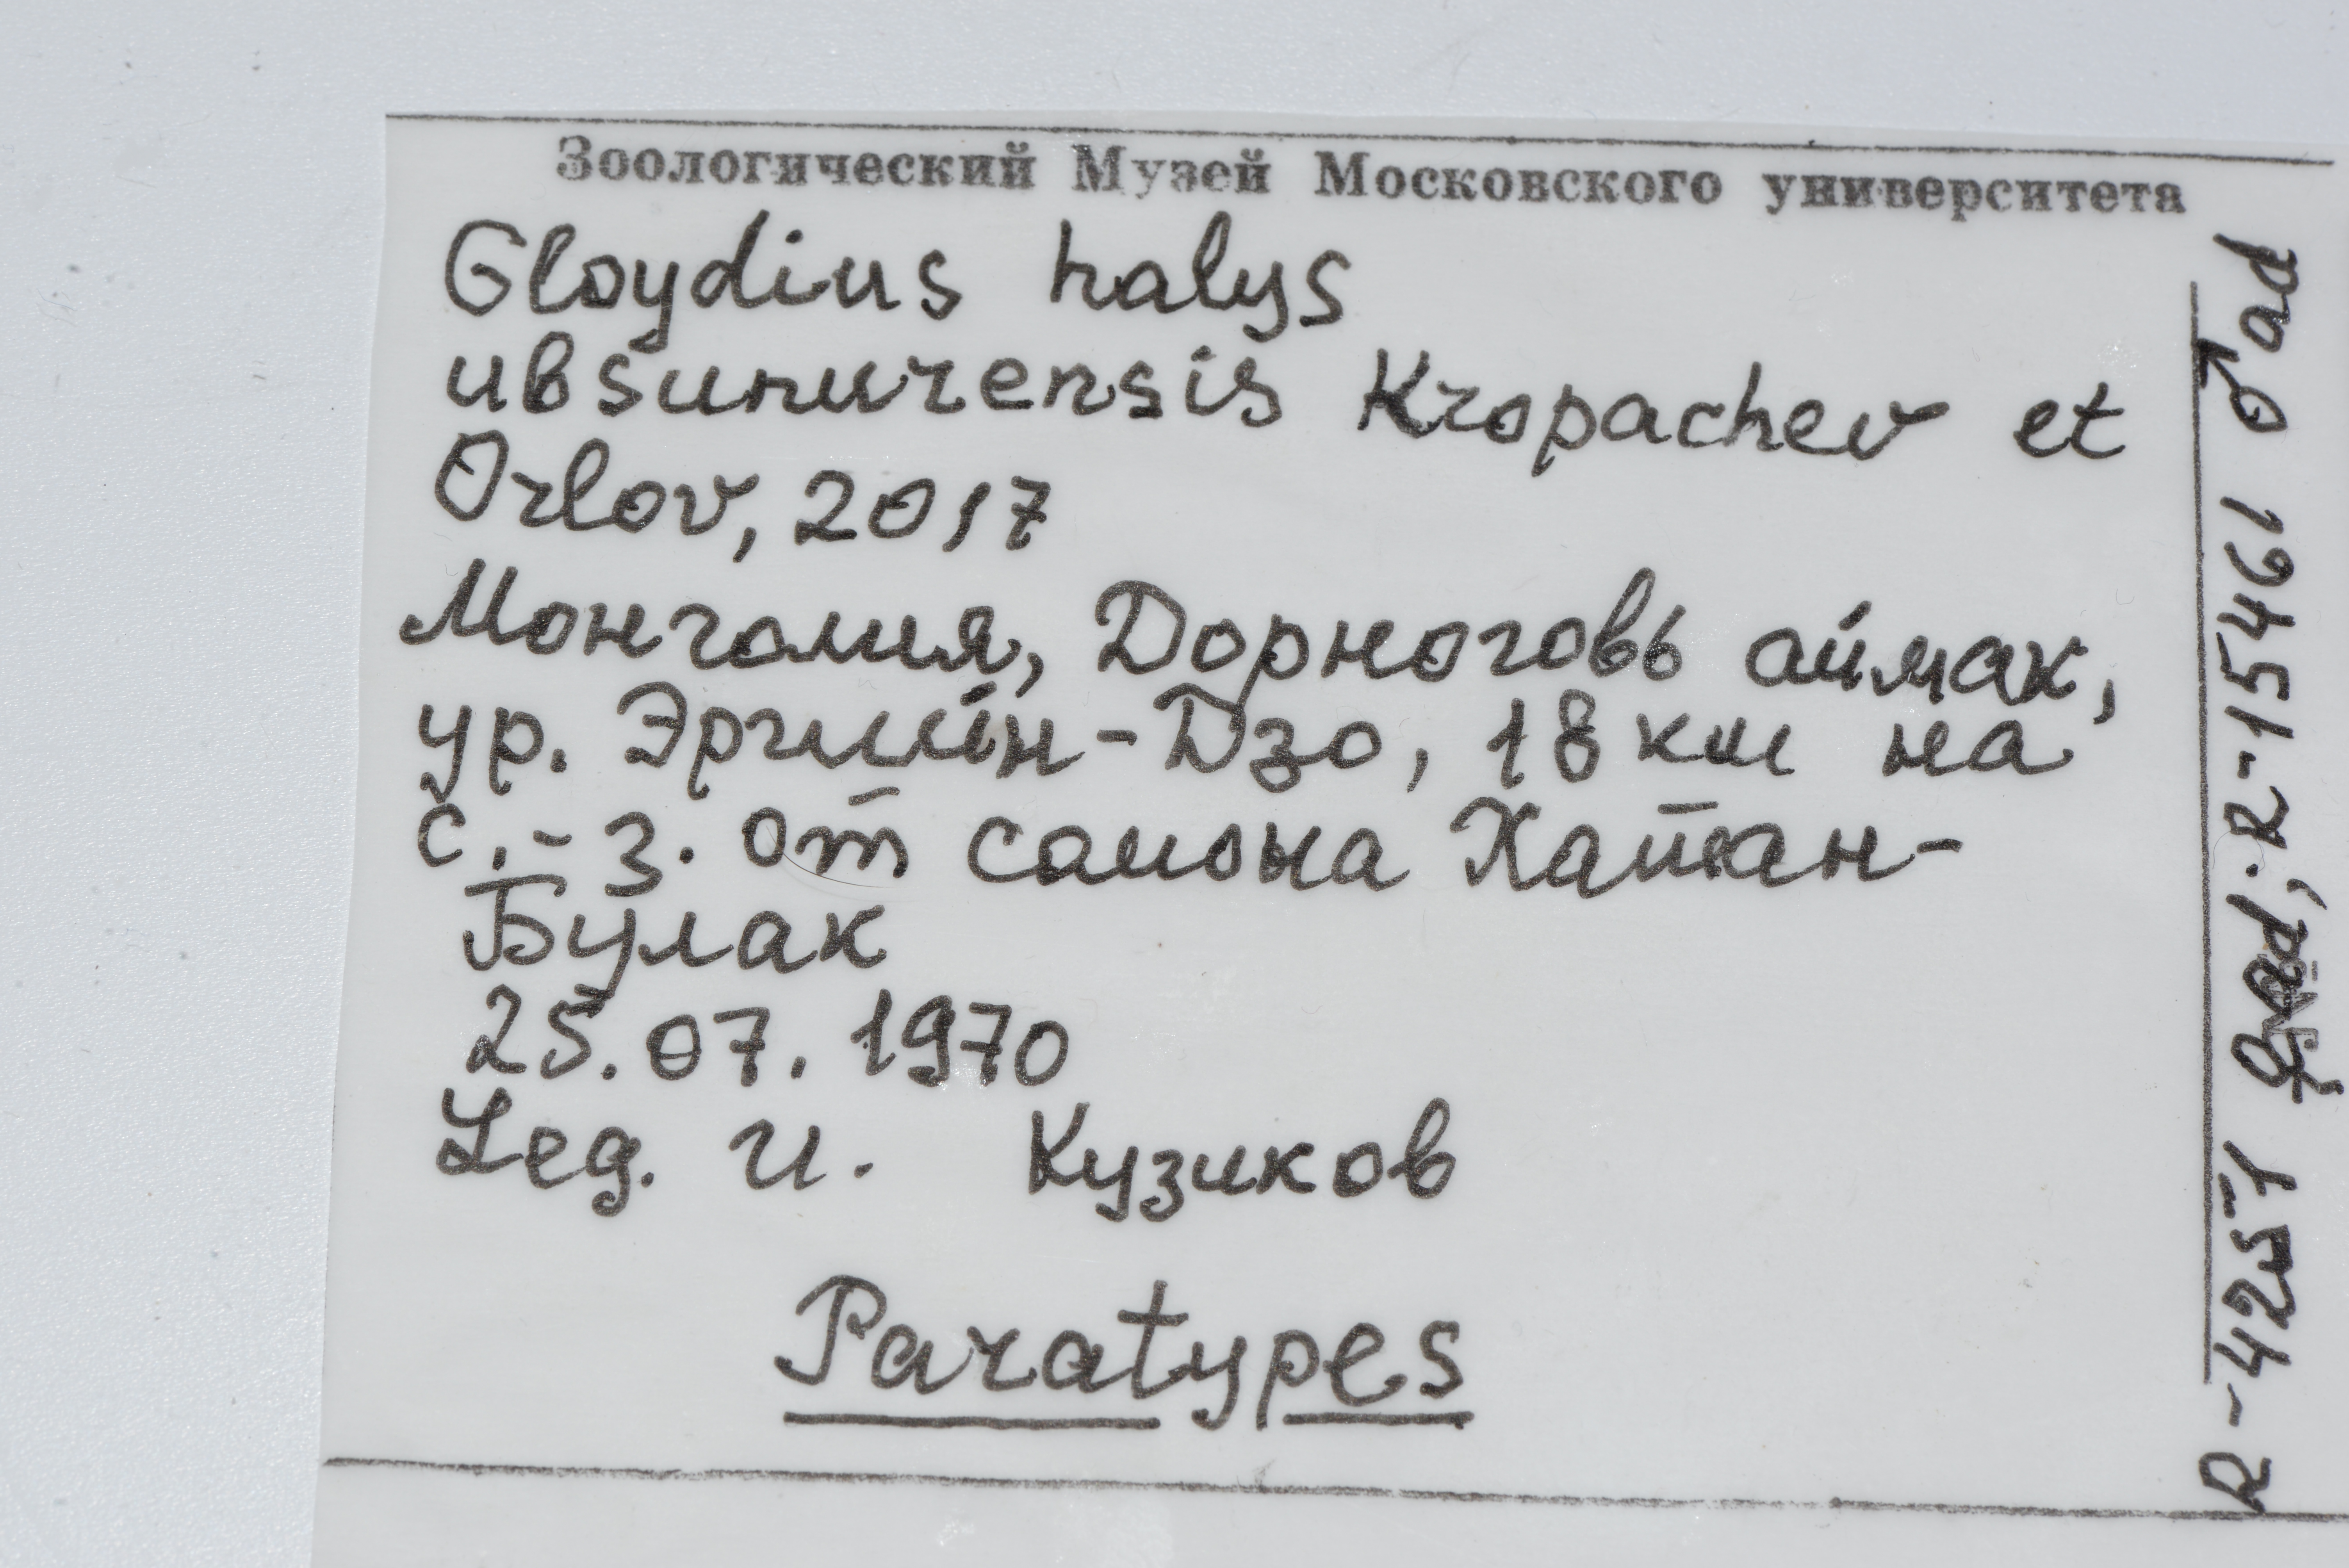 Зоологический Музей Московского университета
Gloydius halys
ubsunurensis Kropachev et
Orlov, 2017
Монголия, Дорноговь аймак,
ур. Эргилийн-Дзо, 18 км на
с.-з. от самона Хатан-
Булак
25.07.1970
Leg. И. Кузиков
Paratypes
R-4257 ♀ad; R-15461 ♂ad